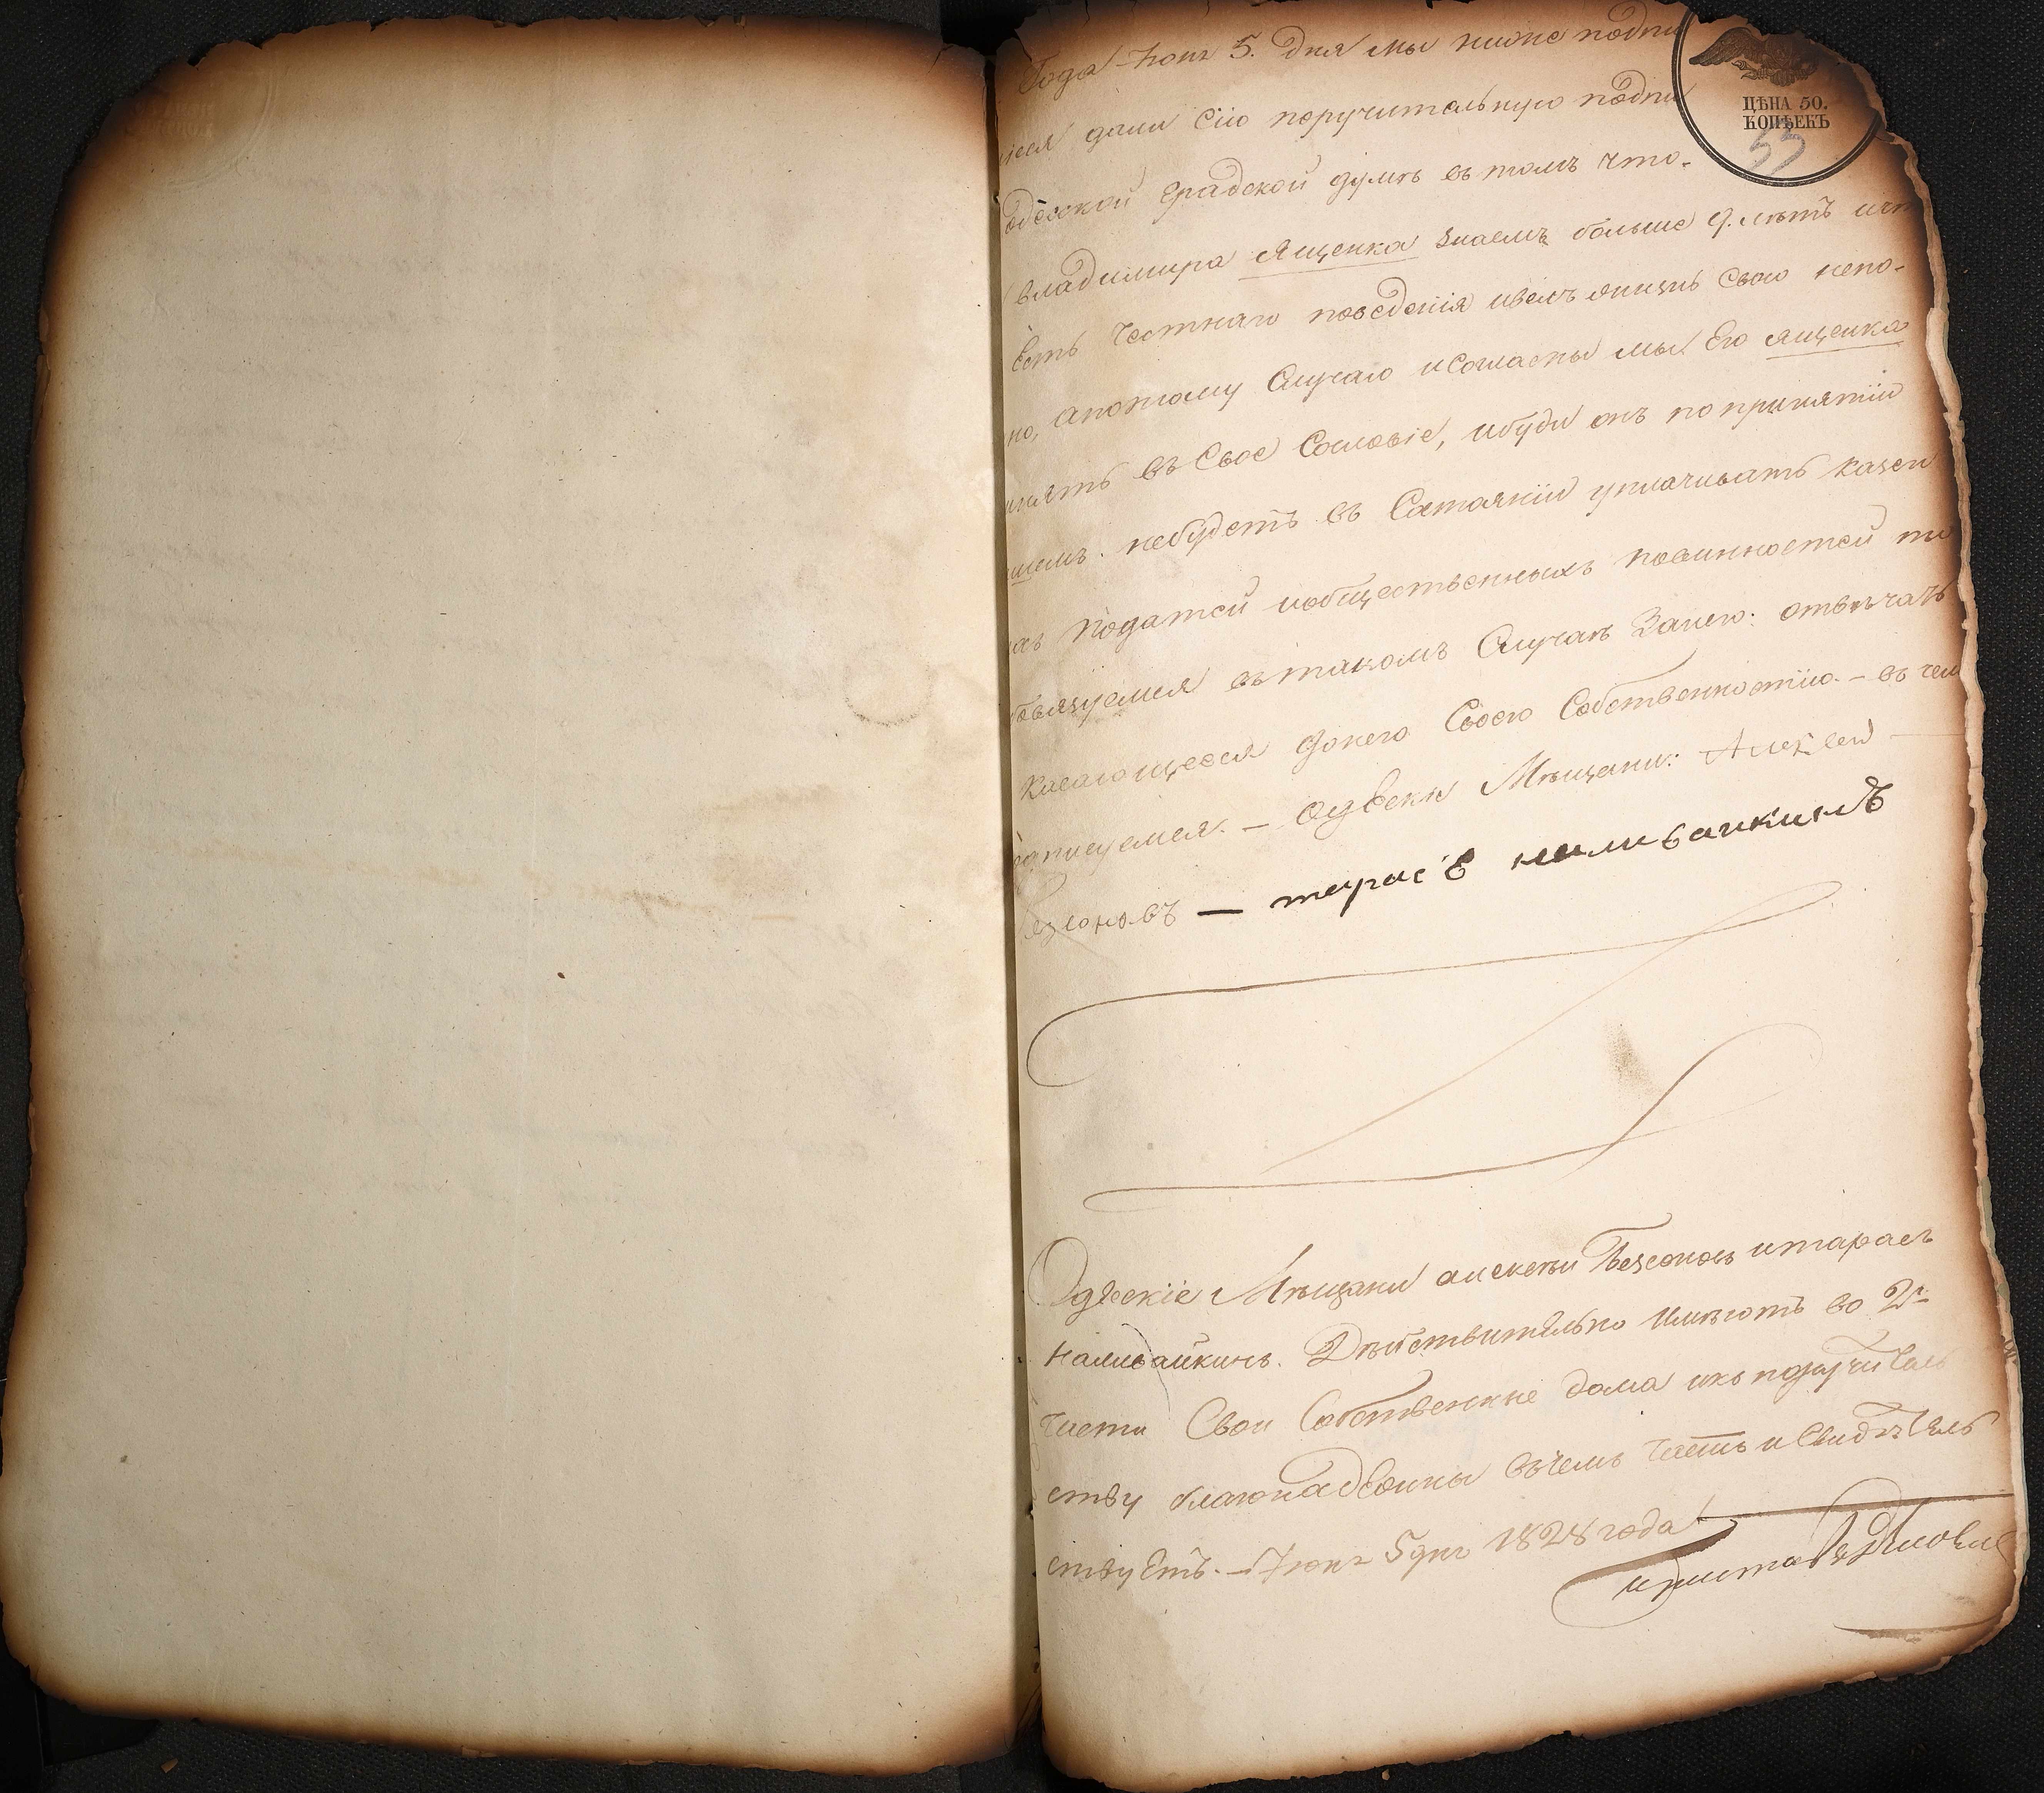 Года Іюня 5. дня мы ниже подпи
ЦѢНА 50.
КОПѢЕКЪ
53
іеся дали Сію поручительную подпи
одесской градской думѣ въ томъ что-
владимира Ященка знаемъ больше 9. лѣтъ
Есть Честнаго поведенія ивелъ жизнь свою непо-
но, апотому Случаю иСогласны мы Его Ященка
инять въ Свое Сословіе, ибуди онъ попринятіи
небудетъ въ Состояніи уплачивать казен
податей иобщественныхъ повинностей то
бовязуемся втакомъ Случаѣ Занего: отвѣчать
касающееся донего Своею Собственностію. – въ чем
одписуемся. – Одѣски Мѣщани: Алексей
безсоновъ — тарасъ наливайкинъ
Одѣскіе Мѣщани алексѣи Безсоновъ итарасъ
Наливайкинъ. Дѣйствительно Имѣютъ во 2й
Части Свои Собственные дома икъ поручитель
ству благонадѣжны въчемъ Часть и Свидѣтель
ствуѣтъ. – Іюня 5 дня 1828 года